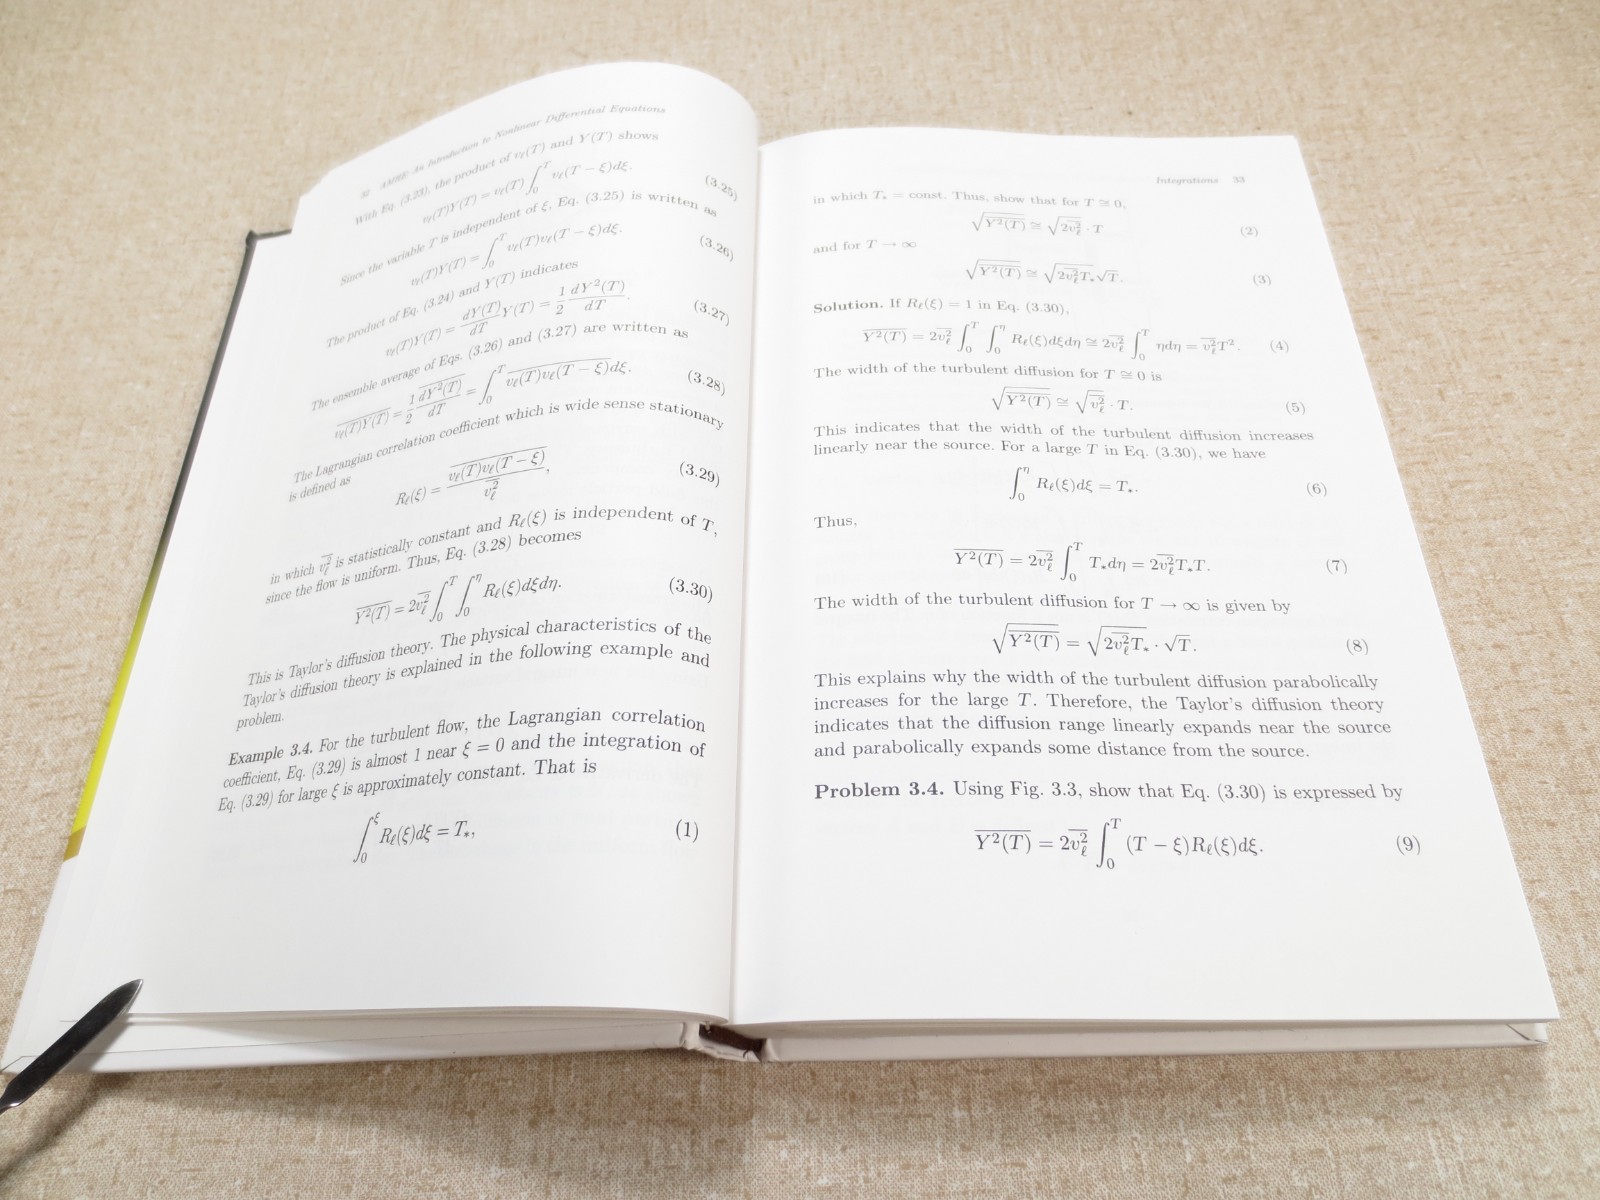 32 AMHE–An Introduction to Nonlinear Differential Equations
With Eq. (3.23), the product of vℓ(T) and Y(T) shows
vℓ(T)Y(T) = vℓ(T) ∫₀ᵀ vℓ(T − ξ)dξ. (3.25)
Since the variable T is independent of ξ, Eq. (3.25) is written as
vℓ(T)Y(T) = ∫₀ᵀ vℓ(T)vℓ(T − ξ)dξ. (3.26)
The product of Eq. (3.24) and Y(T) indicates
vℓ(T)Y(T) = \frac{dY(T)}{dT} Y(T) = \frac{1}{2} \frac{dY²(T)}{dT}. (3.27)
The ensemble average of Eqs. (3.26) and (3.27) are written as
\overline{vℓ(T)Y(T)} = \frac{1}{2} \frac{d\overline{Y²(T)}}{dT} = ∫₀ᵀ \overline{vℓ(T)vℓ(T − ξ)}dξ. (3.28)
The Lagrangian correlation coefficient which is wide sense stationary
is defined as
Rℓ(ξ) = \frac{\overline{vℓ(T)vℓ(T − ξ)}}{\overline{vℓ²}}, (3.29)
in which \overline{vℓ²} is statistically constant and Rℓ(ξ) is independent of T,
since the flow is uniform. Thus, Eq. (3.28) becomes
\overline{Y²(T)} = 2\overline{vℓ²} ∫₀ᵀ ∫₀^η Rℓ(ξ)dξdη. (3.30)
This is Taylor's diffusion theory. The physical characteristics of the
Taylor's diffusion theory is explained in the following example and
problem.
Example 3.4. For the turbulent flow, the Lagrangian correlation
coefficient, Eq. (3.29) is almost 1 near ξ = 0 and the integration of
Eq. (3.29) for large ξ is approximately constant. That is
∫₀^ξ Rℓ(ξ)dξ = T*, (1)
Integrations 33
in which T* = const. Thus, show that for T ≅ 0,
√\overline{Y²(T)} ≅ √\overline{2vℓ²} · T (2)
and for T → ∞
√\overline{Y²(T)} ≅ √{2\overline{vℓ²}T*}√T. (3)
Solution. If Rℓ(ξ) = 1 in Eq. (3.30),
\overline{Y²(T)} = 2\overline{vℓ²} ∫₀ᵀ ∫₀^η Rℓ(ξ)dξdη ≅ 2\overline{vℓ²} ∫₀ᵀ ηdη = \overline{vℓ²}T². (4)
The width of the turbulent diffusion for T ≅ 0 is
√\overline{Y²(T)} ≅ √\overline{vℓ²} · T. (5)
This indicates that the width of the turbulent diffusion increases
linearly near the source. For a large T in Eq. (3.30), we have
∫₀^η Rℓ(ξ)dξ = T*. (6)
Thus,
\overline{Y²(T)} = 2\overline{vℓ²} ∫₀ᵀ T*dη = 2\overline{vℓ²}T*T. (7)
The width of the turbulent diffusion for T → ∞ is given by
√\overline{Y²(T)} = √{2\overline{vℓ²}T*} · √T. (8)
This explains why the width of the turbulent diffusion parabolically
increases for the large T. Therefore, the Taylor's diffusion theory
indicates that the diffusion range linearly expands near the source
and parabolically expands some distance from the source.
Problem 3.4. Using Fig. 3.3, show that Eq. (3.30) is expressed by
\overline{Y²(T)} = 2\overline{vℓ²} ∫₀ᵀ (T − ξ)Rℓ(ξ)dξ. (9)